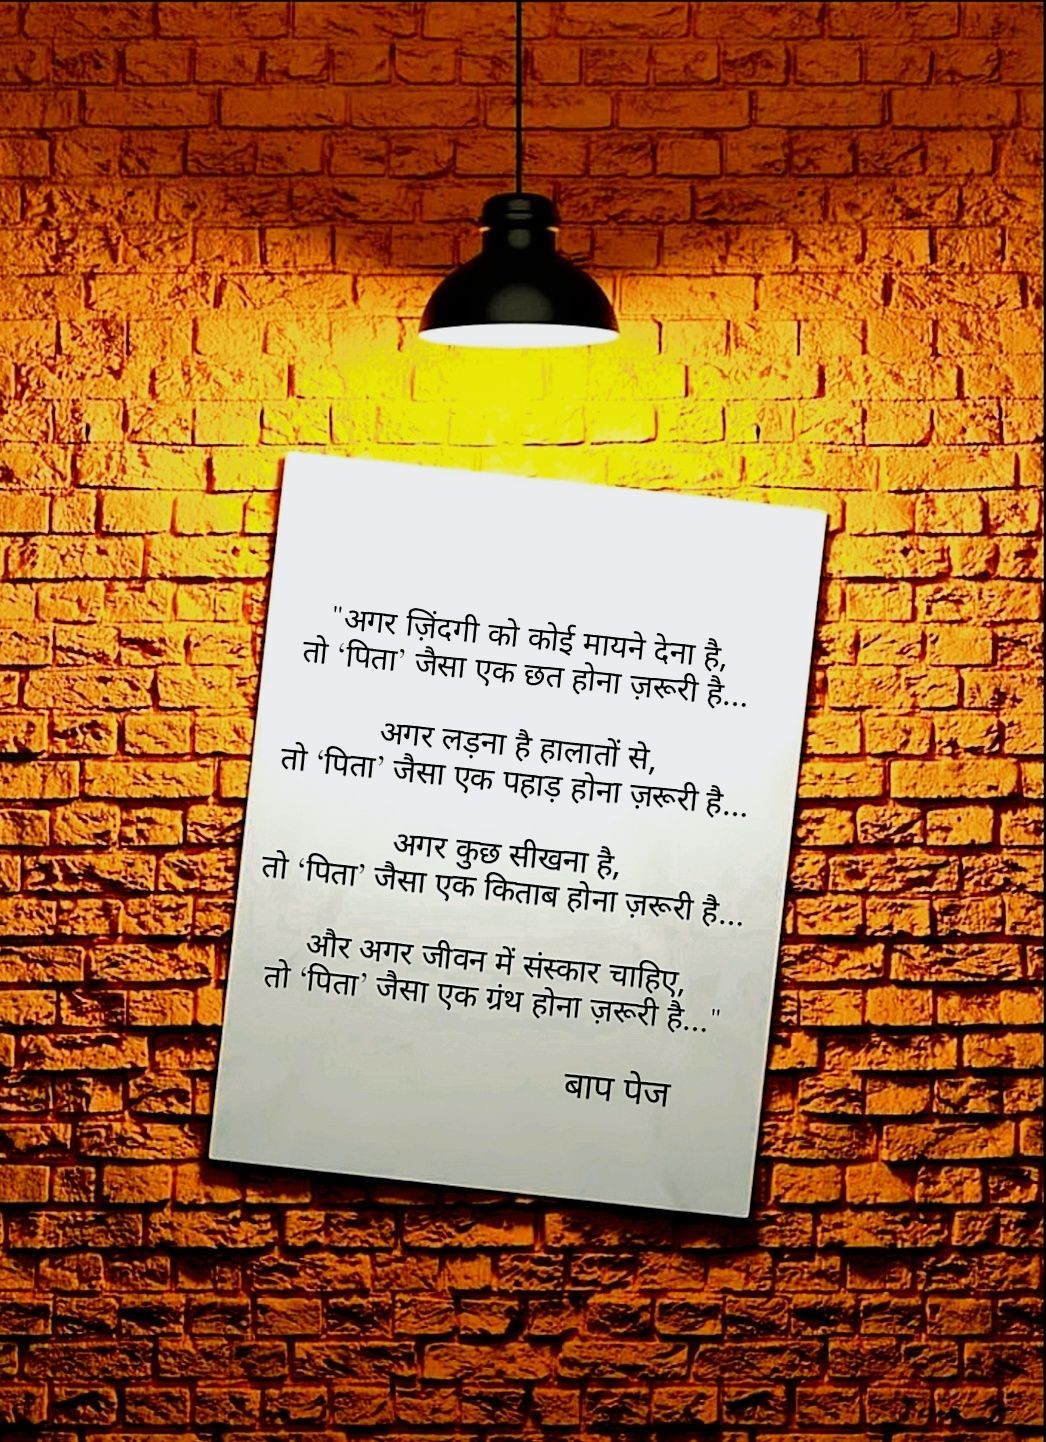 "अगर ज़िंदगी को कोई मायने देना है,
तो ‘पिता’ जैसा एक छत होना ज़रूरी है...
अगर लड़ना है हालातों से,
तो ‘पिता’ जैसा एक पहाड़ होना ज़रूरी है...
अगर कुछ सीखना है,
तो ‘पिता’ जैसा एक किताब होना ज़रूरी है...
और अगर जीवन में संस्कार चाहिए,
तो ‘पिता’ जैसा एक ग्रंथ होना ज़रूरी है..."
बाप पेज